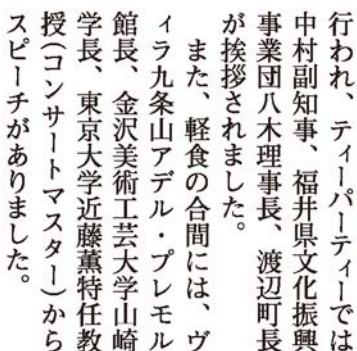 行われ、ティーパーティーでは
中村副知事、福井県文化振興
事業団八木理事長、渡辺町長
が挨拶されました。
また、軽食の合間には、ヴ
ィラ九条山アデル・プレモル
館長、金沢美術工芸大学山崎
学長、東京大学近藤薫特任教
授(コンサートマスター)から
スピーチがありました。